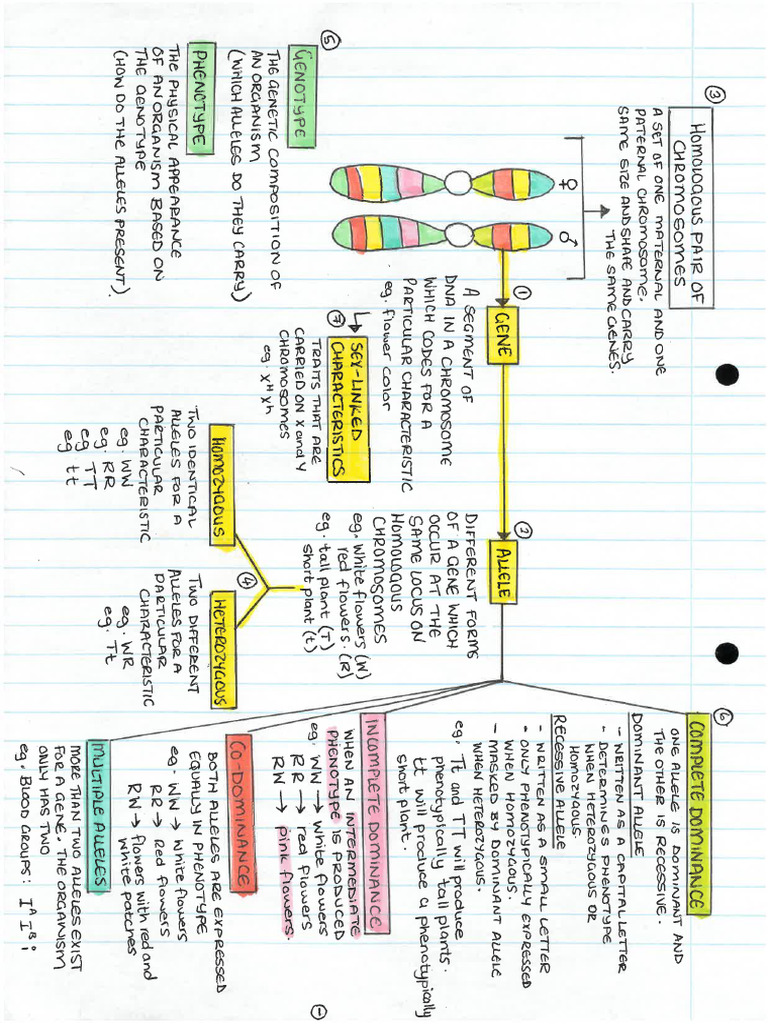 ③
Homologous PAIR OF
CHROMOSOMES
A SET OF ONE MATERNAL AND ONE
PATERNAL CHROMOSOME.
SAME SIZE AND SHAPE AND CARRY
THE SAME GENES.
♀
♂
⑤
GENOTYPE
THE GENETIC COMPOSITION OF
AN ORGANISM
(WHICH ALLELES DO THEY CARRY)
PHENOTYPE
THE PHYSICAL APPEARANCE
OF AN ORGANISM BASED ON
THE GENOTYPE
(HOW DO THE ALLELES PRESENT).
①
GENE
A SEGMENT OF
DNA IN A CHROMOSOME
WHICH CODES FOR A
PARTICULAR CHARACTERISTIC
eg. flower color
⑦
SEX-LINKED
CHARACTERISTICS
TRAITS THAT ARE
CARRIED ON X and Y
CHROMOSOMES
eg. Xᴴ Xʰ
②
ALLELE
DIFFERENT FORMS
OF A GENE WHICH
OCCUR AT THE
SAME LOCUS ON
HOMOLOGOUS
CHROMOSOMES
eg. White flowers (W)
red flowers. (R)
eg. tall plant (T)
short plant (t)
④
HOMOZYGOUS
TWO IDENTICAL
ALLELES FOR A
PARTICULAR
CHARACTERISTIC
eg. WW
eg. RR
eg TT
eg tt
HETEROZYGOUS
TWO DIFFERENT
ALLELES FOR A
PARTICULAR
CHARACTERISTIC
eg. WR
eg. Tt
⑥
COMPLETE DOMINANCE
ONE ALLELE IS DOMINANT AND
THE OTHER IS RECESSIVE.
DOMINANT ALLELE
- WRITTEN AS A CAPITAL LETTER
- DETERMINES PHENOTYPE
WHEN HETEROZYGOUS OR
HOMOZYGOUS.
RECESSIVE ALLELE
- WRITTEN AS A SMALL LETTER
- ONLY PHENOTYPICALLY EXPRESSED
WHEN HOMOZYGOUS.
- MASKED BY DOMINANT ALLELE
WHEN HETEROZYGOUS.
eg. Tt and TT will produce
phenotypically tall plants.
tt will produce a phenotypically
short plant.
INCOMPLETE DOMINANCE
WHEN AN INTERMEDIATE
PHENOTYPE IS PRODUCED
eg. WW → white flowers
RR → red flowers
RW → pink flowers.
CO-DOMINANCE
BOTH ALLELES ARE EXPRESSED
EQUALLY IN PHENOTYPE
eg. WW → White flowers
RR → Red flowers
RW → flowers with red and
white patches
MULTIPLE ALLELES
MORE THAN TWO ALLELES EXIST
FOR A GENE. THE ORGANISM
ONLY HAS TWO
eg. BLOOD GROUPS: Iᴬ Iᴮ i
①